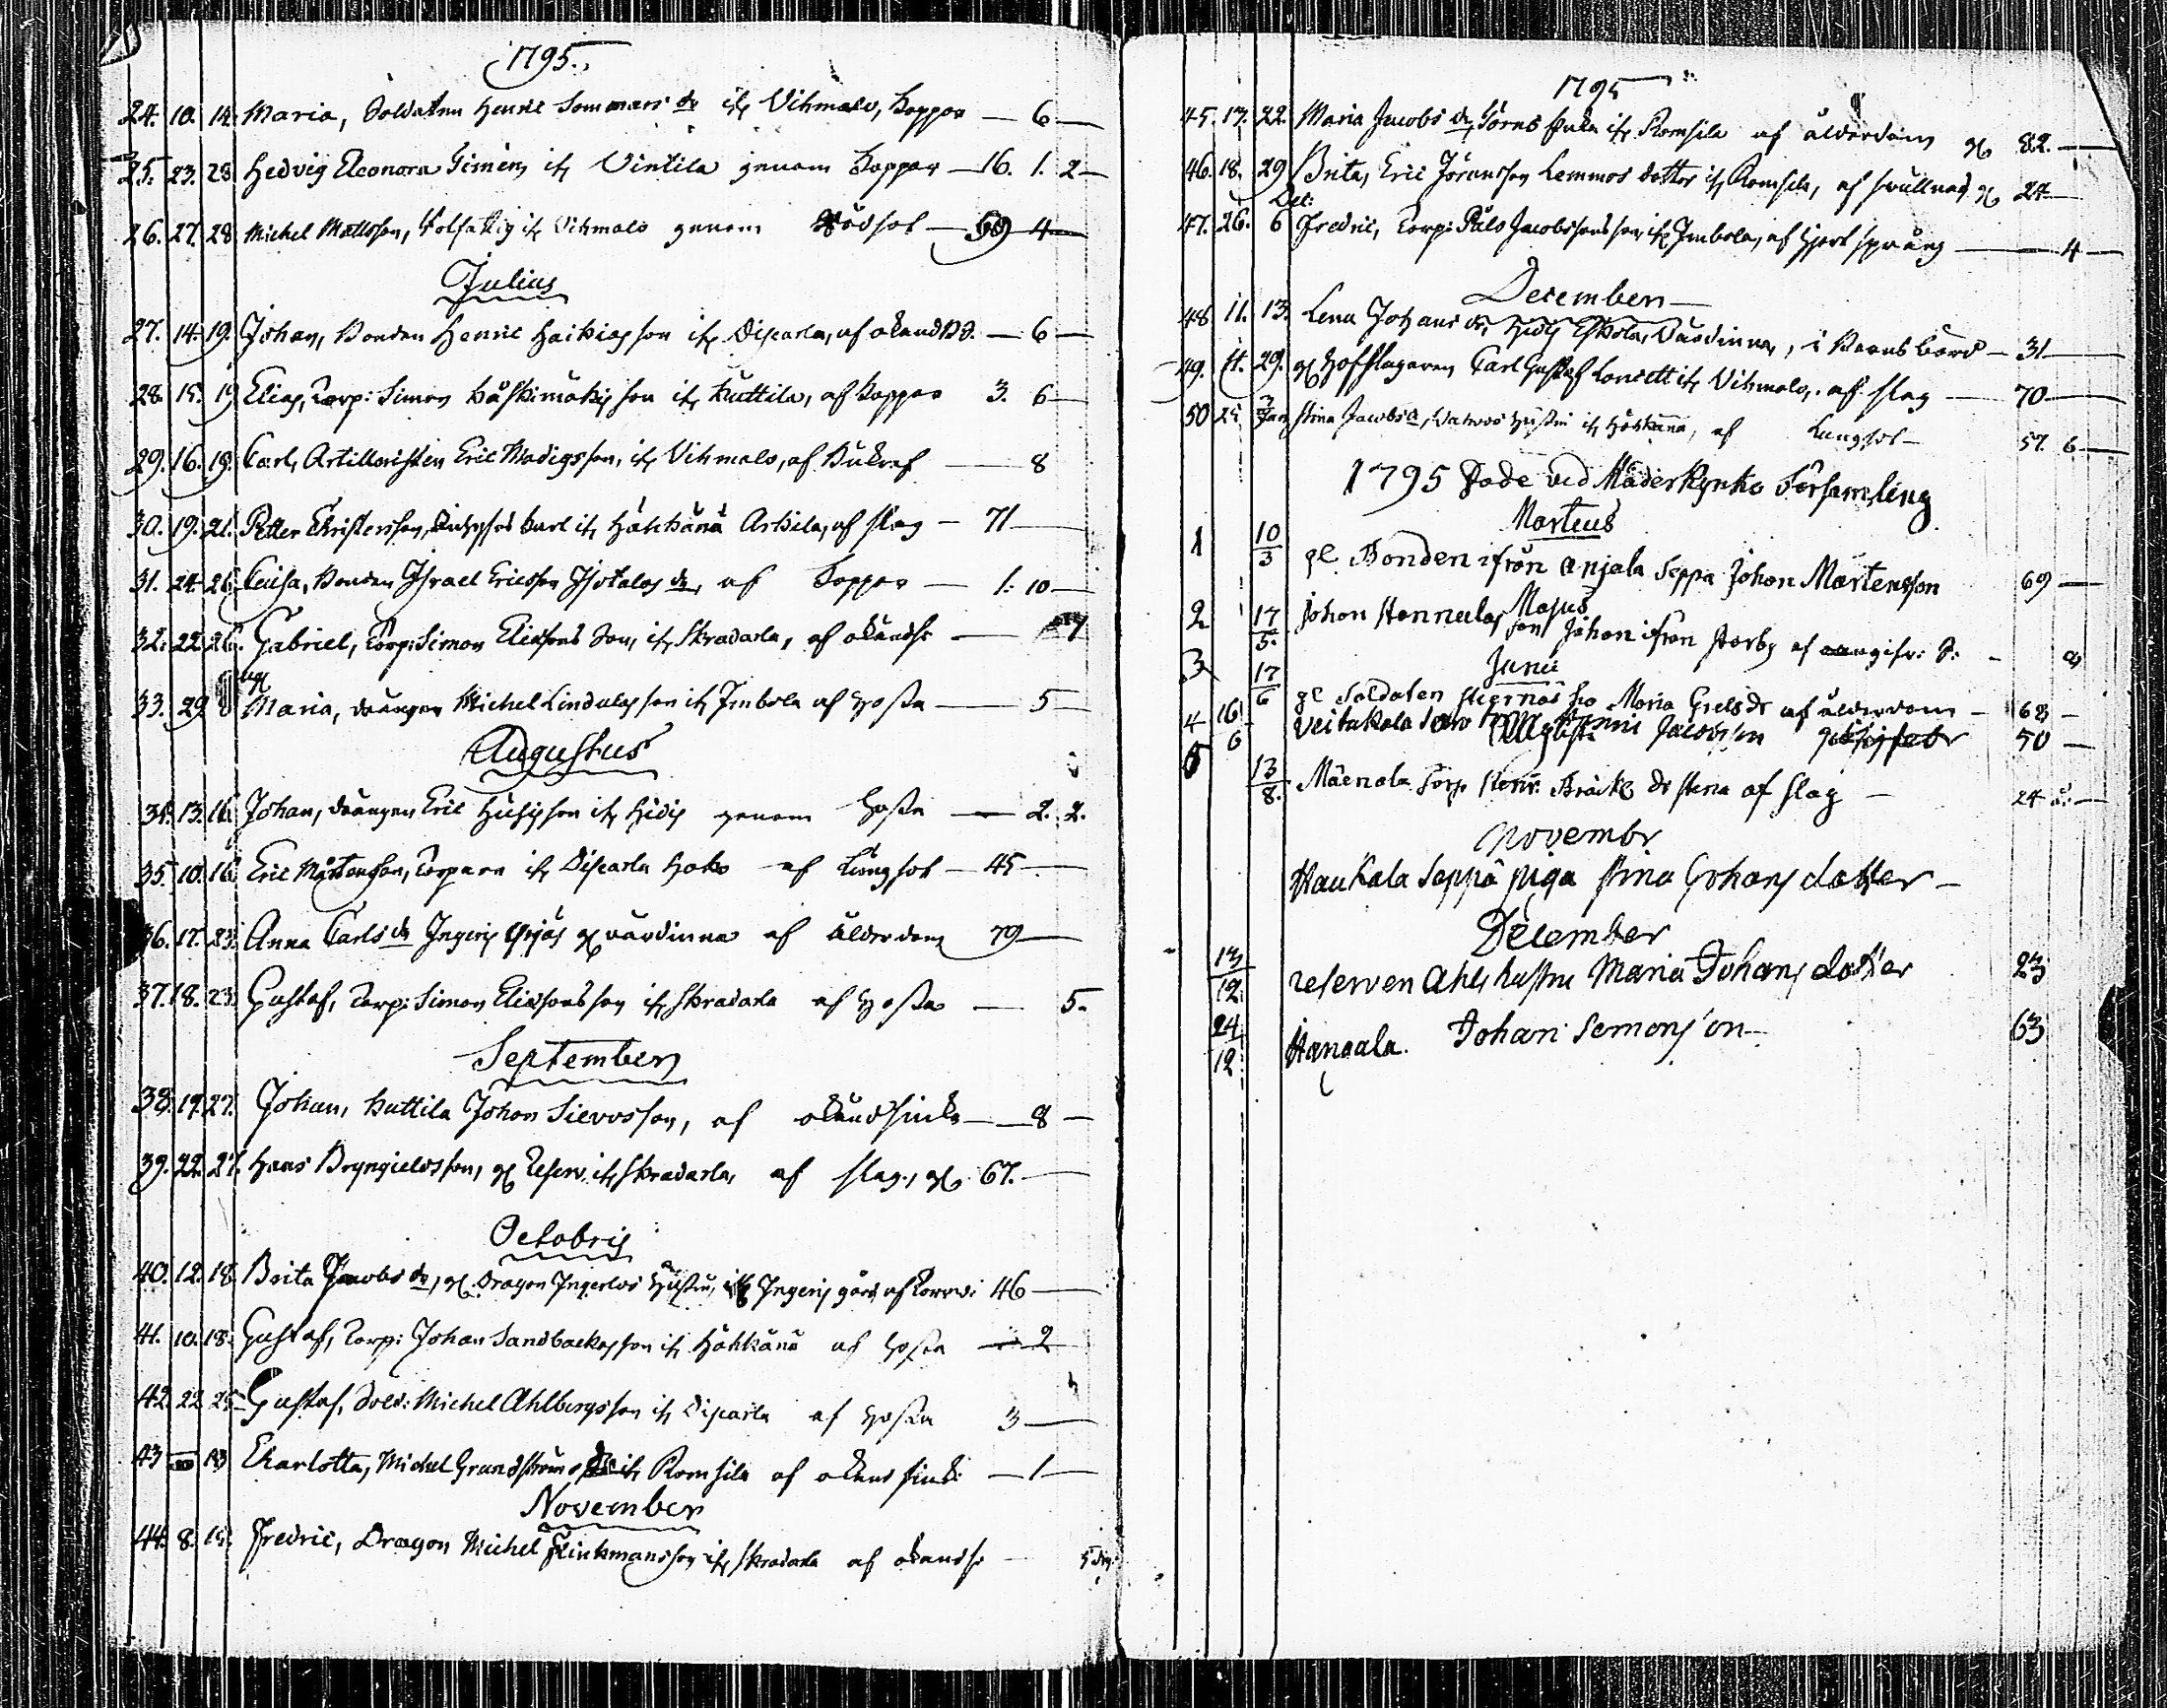 1795.
24. 10. 14. Maria, Soldaten Henric Sommars dr ifr. Vihmalo, koppor — 6 —
25. 23. 28. Hedvig Eleonora Simén ifr. Vintila genom koppor — 16. 1. 2 —
26. 27. 28. Michel Mattsson, ifr. Vihmalo genom Rödsot — 59 4 —
Julius
27. 14. 19. Johan, Bonden Henric Haikias son ifr. Discarla, af okänd — 6 —
28. 15. 19. Elias, Torp: Simon son ifr. Kuttila, af koppor 3. 6 —
29. 16. 19. Carl, Artilleristen Eric Madigs son, ifr. Vihmalo, af — 8
30. 19. 21. Petter Christersson, karl ifr. Hähkänä Arkila, af slag — 71 —
31. 24. 26. Caisa, Bonden Israel Ericsson Isotalos dr, af koppor — 1: 10 —
32. 22. 26. Gabriel, Torp: Simon Eliæsons Son, ifr. Skradarla, af okändsi — 7
33. 29. Maria, drängen Michel Lindulas son ifr. Imbola af hosta — 5 —
Augustus
34. 13. 16. Johan, drängen Eric son ifr. Hidis genom hosta — 2. 2.
35. 10. 16. Eric Mårtensson, Torpare ifr. Discarla Hoko af Lungsot — 45 —
36. 17. 23. Anna Carls dr Ingeris gl värdinna af ålderdom 79 —
37. 18. 23. Gustaf, Torp: Simon Eliæsons son ifr. Skradarla af hosta — 5.
September
38. 19. 27. Johan, Kuttila Johan Sievos son, af okändsiuka — 8 —
39. 22. 27. Hans Bryngielsson, gl Reserv. ifr. Skradarla, af slag, gl 67. —
Octobris
40. 12. 18. Brita Jacobs dr, gl. Dragon Ingerlos hustru, ifr. Ingeris gård, af 46 —
41. 10. 18. Gustaf, Torp: Johan Sandbackas son ifr. Hähkänä af hosta — 2
42. 22. 25. Gustaf, Sold: Michel Ahlbergs son ifr. Discarla af hosta 3 —
43 Charlotta, Michel Grundströms ifr. Romsila af okänd siuk: — 1 —
November
44. 8. 15. Fredric, Dragon Michel Flinkmans son ifr. Skradarla af okändsi —
1795
45. 17. 22. Maria Jacobs dr, ifr. Romsila af ålderdom gl 82. —
46. 18. 29 Brita, Eric Jöransson Lemmos dotter ifr. Romsila, af svullnad, gl 24 —
Dec:
47. 26. 6 Fredric, Torp: Påls Jacobssons son, ifr. Imbola, af hjertsprång — 4 —
December
48 11. 13. Lena Johans dr, Hidis Eskola, Värdinna, i Barnsbörd — 31 —
49. 29. gl Hofslagaren Carl Gustaf ifr. Vihmalo, af slag — 70 —
50 25 Jan Stina Jacobs dr, hustru ifr. Hähkänä, af Lungsot — 57. 6 —
1795 Döde vid Mäderkynko Församling
Martius
1 10/3 gl Bonden ifrån Anjala Seppä Johan Mårtensson 69 —
Majus
2 17/5. Johan Hannulas son Johan ifrån Storby af
Junii
3 17/6 gl Soldaten Maria Grels dr af ålderdom — 68 —
4 16/6 Veitakala Jacobsson 50 —
5 13/8. Mäenala Torp. dr Stina af slag — 24 —
Novembr
Haukala Seppä piga Stina Johans dotter —
December
13/12. reserven Ahls hustru Maria Johans dotter 23
24/12. Johan Semonson — 63